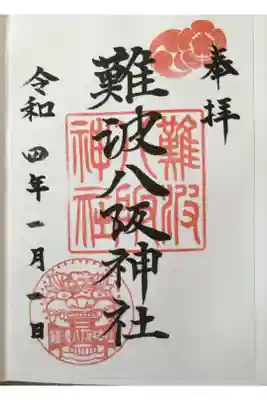 奉拝
難波八阪神社
令和四年一月一日
難波
八阪
神社